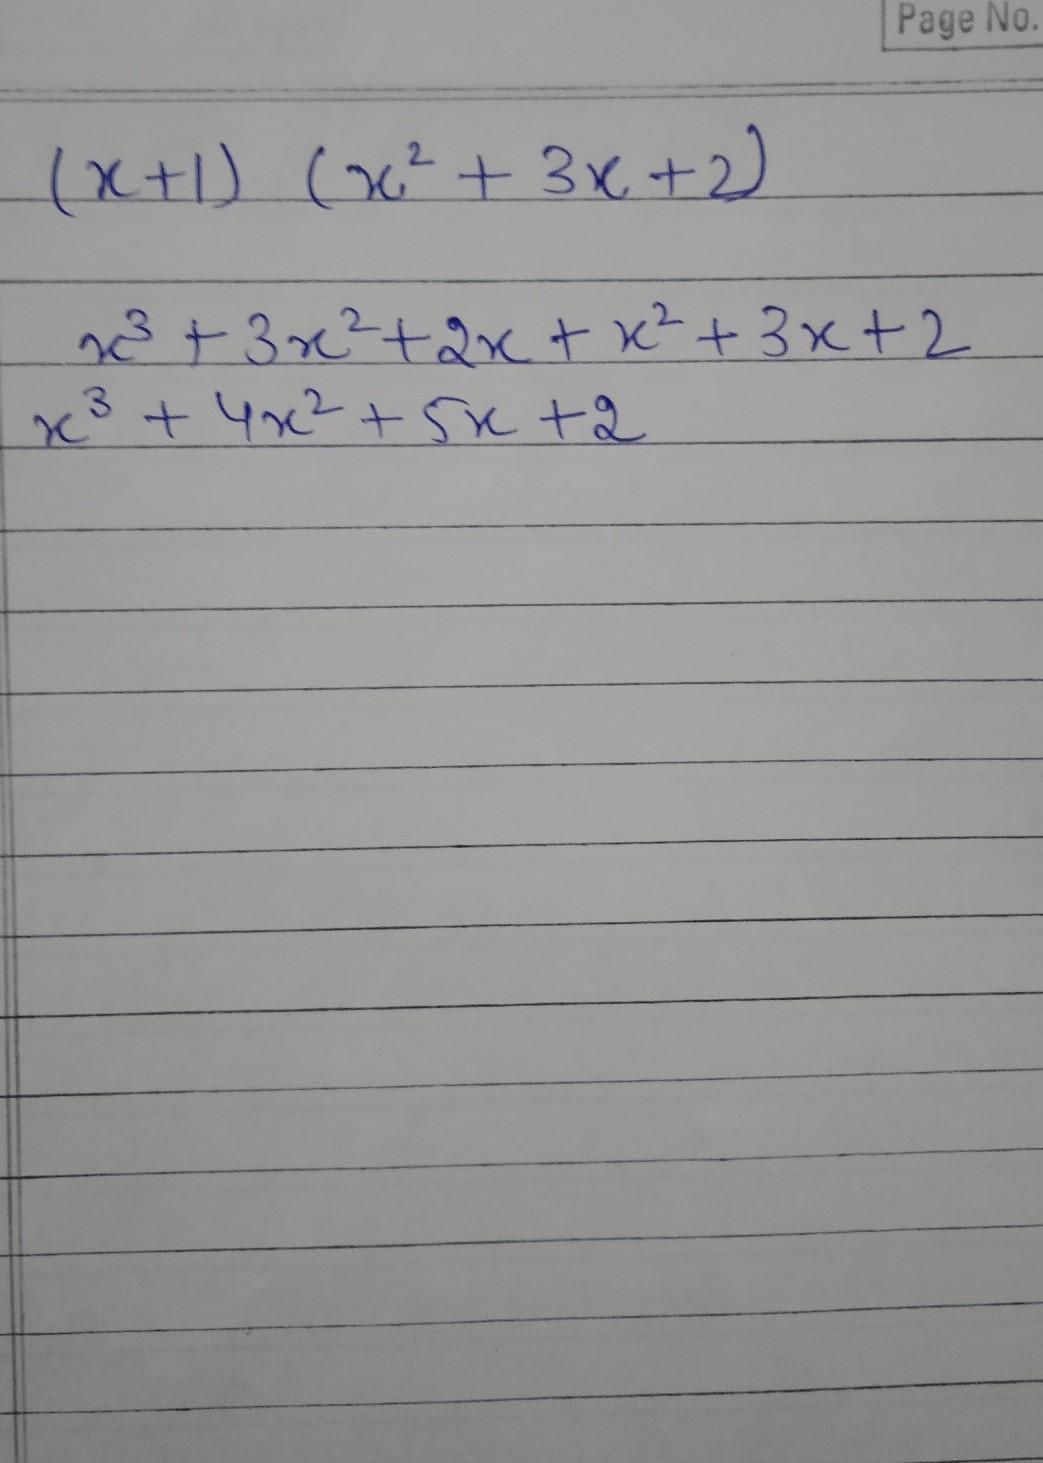 Page No.
(x+1) (x² + 3x +2)
x³ + 3x² + 2x + x² + 3x + 2
x³ + 4x² + 5x + 2